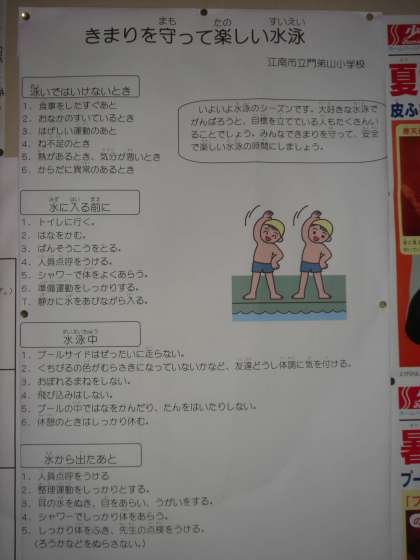 きまりを守って楽しい水泳
江南市立門弟山小学校
泳いではいけないとき
1. 食事をしたすぐあと
2. おなかのすいているとき
3. はげしい運動のあと
4. ね不足のとき
5. 熱があるとき、気分が悪いとき
6. からだに異常のあるとき
いよいよ水泳のシーズンです。大好きな水泳で
がんばろうと、目標を立てている人もたくさんい
ることでしょう。みんなできまりを守って、安全
で楽しい水泳の時間にしましょう。
水に入る前に
1. トイレに行く。
2. はなをかむ。
3. ばんそうこうをとる。
4. 人員点呼をうける。
5. シャワーで体をよくあらう。
6. 準備運動をしっかりする。
7. 静かに水をあびながら入る。
水泳中
1. プールサイドはぜったいに走らない。
2. くちびるの色がむらさきになっていないかなど、友達どうし体調に気を付ける。
3. おぼれるまねをしない。
4. 飛び込みはしない。
5. プールの中ではなをかんだり、たんをはいたりしない。
6. 休憩のときはしっかり休む。
水から出たあと
1. 人員点呼をうける
2. 整理運動をしっかりとする。
3. 耳の水をぬき、目をあらい、うがいをする。
4. シャワーでしっかり体をあらう。
5. しっかり体をふき、先生の点検をうける。
(ろうかなどをぬらさない。)
夏
皮ふ
暑
プー